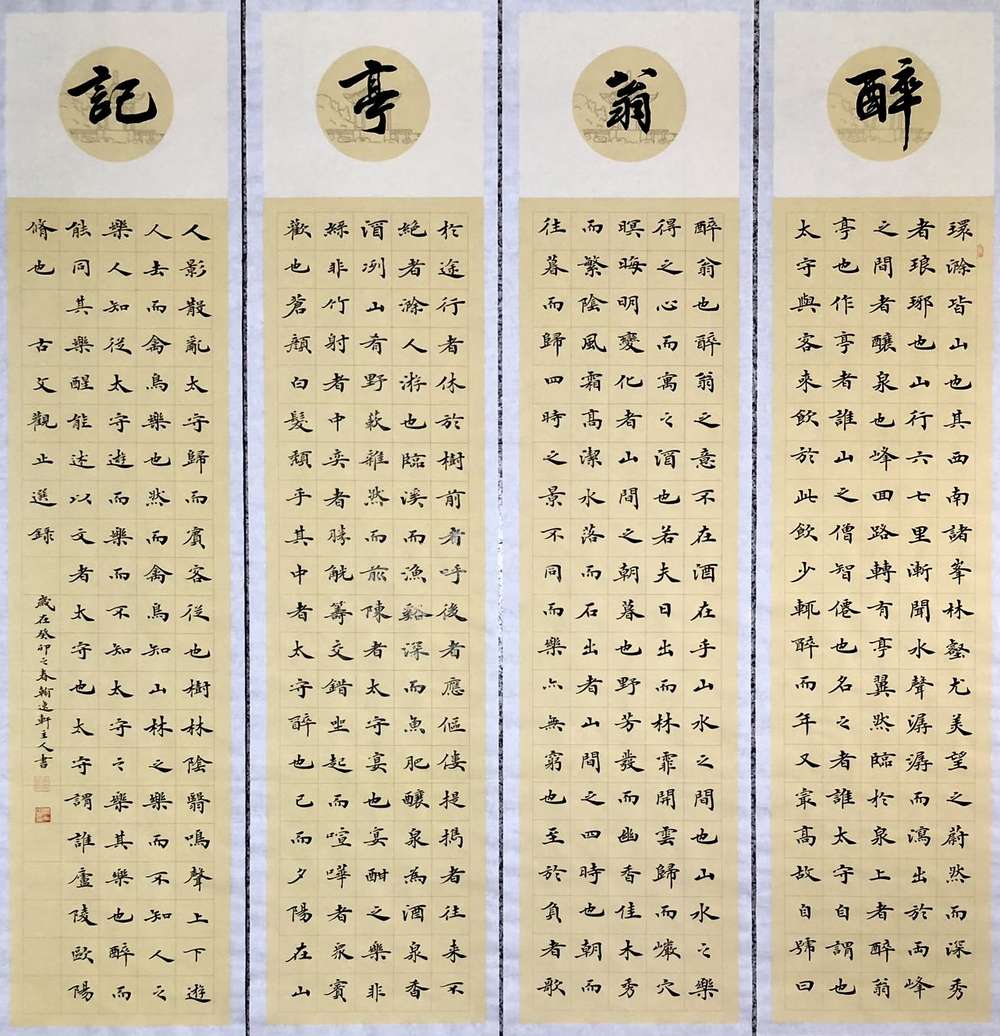 醉翁亭記
環滁皆山也其西南諸峯林壑尤美望之蔚然而深秀
者琅琊也山行六七里漸聞水聲潺潺而瀉出於兩峰
之間者釀泉也峰回路轉有亭翼然臨於泉上者醉翁
亭也作亭者誰山之僧智僊也名之者誰太守自謂也
太守與客來飲於此飲少輒醉而年又最高故自號曰
醉翁也醉翁之意不在酒在乎山水之間也山水之樂
得之心而寓之酒也若夫日出而林霏開雲歸而巖穴
暝晦明變化者山間之朝暮也野芳發而幽香佳木秀
而繁陰風霜高潔水落而石出者山間之四時也朝而
往暮而歸四時之景不同而樂亦無窮也至於負者歌
於途行者休於樹前者呼後者應傴僂提攜者往來不
絕者滁人游也臨溪而漁谿深而魚肥釀泉為酒泉香
酒冽山肴野蔌雜然而前陳者太守宴也宴酣之樂非
絲非竹射者中奕者勝觥籌交錯坐起而喧嘩者眾賓
歡也蒼顏白髮頹乎其中者太守醉也已而夕陽在山
人影散亂太守歸而賓客從也樹林陰翳鳴聲上下遊
人去而禽鳥樂也然而禽鳥知山林之樂而不知人之
樂人知從太守遊而樂而不知太守之樂其樂也醉而
能同其樂醒能述以文者太守也太守謂誰廬陵歐陽
脩也 古文觀止選錄
歲在癸卯之春翰逸軒主人書